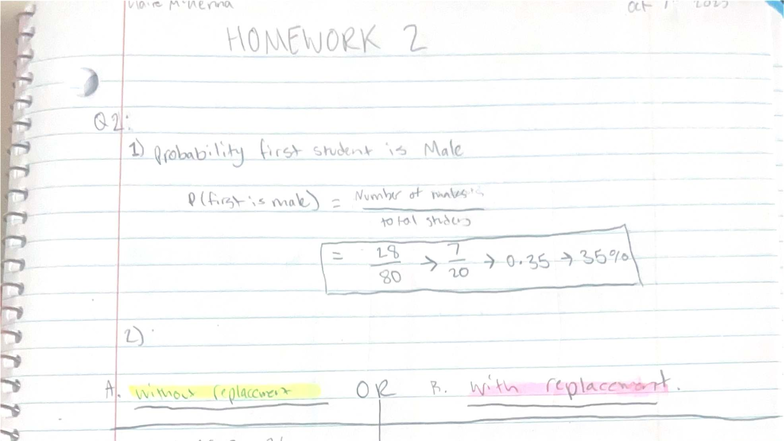 Oct 1 2025
HOMEWORK 2
Q2:
1) Probability first student is Male
P(first is male) = Number of males
total students
= 28/80 → 7/20 → 0.35 → 35%
2)
A. without replacement OR B. with replacement.